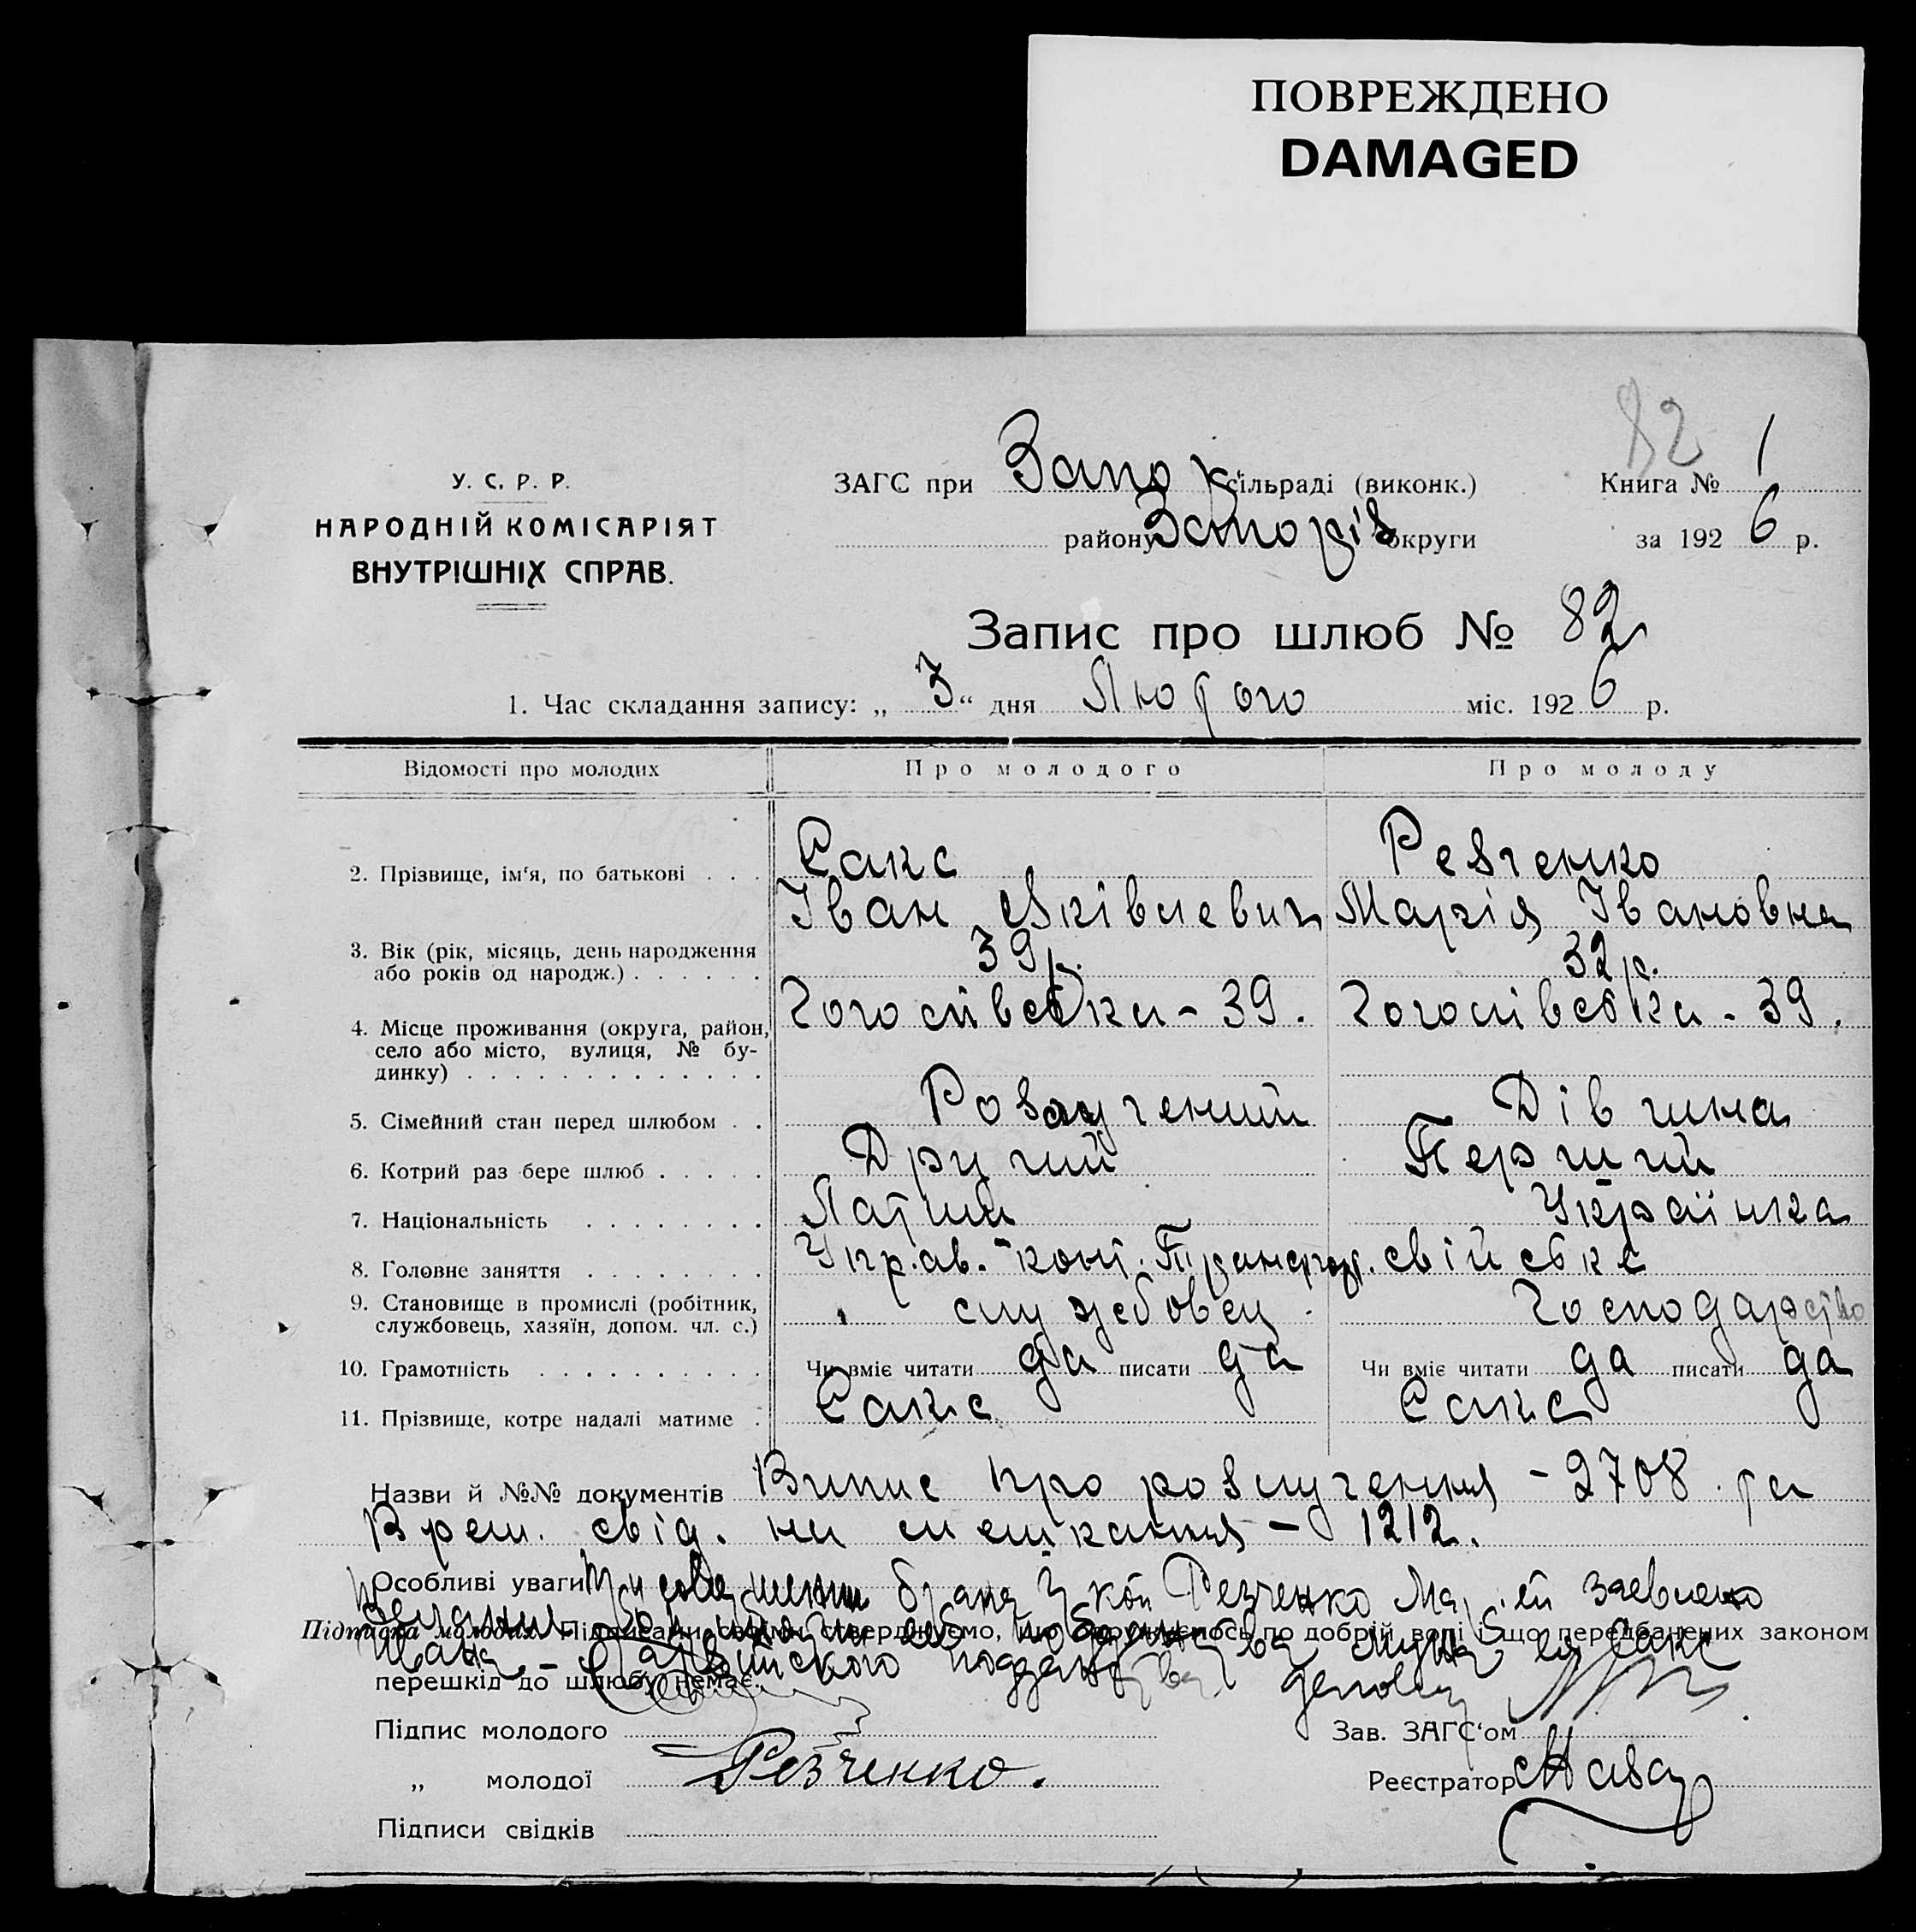 ПОВРЕЖДЕНО
DAMAGED
82
У. С. Р. Р.
НАРОДНІЙ КОМІСАРІЯТ
ВНУТРІШНІХ СПРАВ.
ЗАГС при Запор сільраді (виконк.) Книга № 1
району Запоріз округи за 1926 р.
Запис про шлюб № 82
1. Час складання запису: „3“ дня Лютого міс. 1926 р.
Відомості про молодих Про молодого Про молоду
2. Прізвище, ім'я, по батькові . . . Сакс Резченко
Іван Марія Івановна
3. Вік (рік, місяць, день народження 39 р. 32 р.
або років од народж.) . . . . . .
4. Місце проживання (округа, район, - 39. - 39.
село або місто, вулиця, № бу-
динку) . . . . . . . . . . . . .
5. Сімейний стан перед шлюбом . . Розлучений Дівчина
6. Котрий раз бере шлюб . . . . . Другий Перший
7. Національність . . . . . . . . Латиш Українка
8. Головне заняття . . . . . . . . Упр.ав. Транспорт. свійська
9. Становище в промислі (робітник, службовец Господарство
службовець, хазяїн, допом. чл. с.)
10. Грамотність . . . . . . . . . . Чи вміє читати да писати да Чи вміє читати да писати да
11. Прізвище, котре надалі матиме . Сакс Сакс
Назви й №№ документів Випис про розлучення - 2708 та
Врем. свід. на мешкання - 1212.
Особливі уваги При брака Резченко Марией заевлено
Підписка молодих. Підписами своїми стверджуємо, що одружуємось по добрій волі і що передбачених законом
Ивана - Латвийского подданства
перешкід до шлюбу немає.
Підпис молодого Зав. ЗАГС'ом
„ молодої Резченко. Реєстратор
Підписи свідків